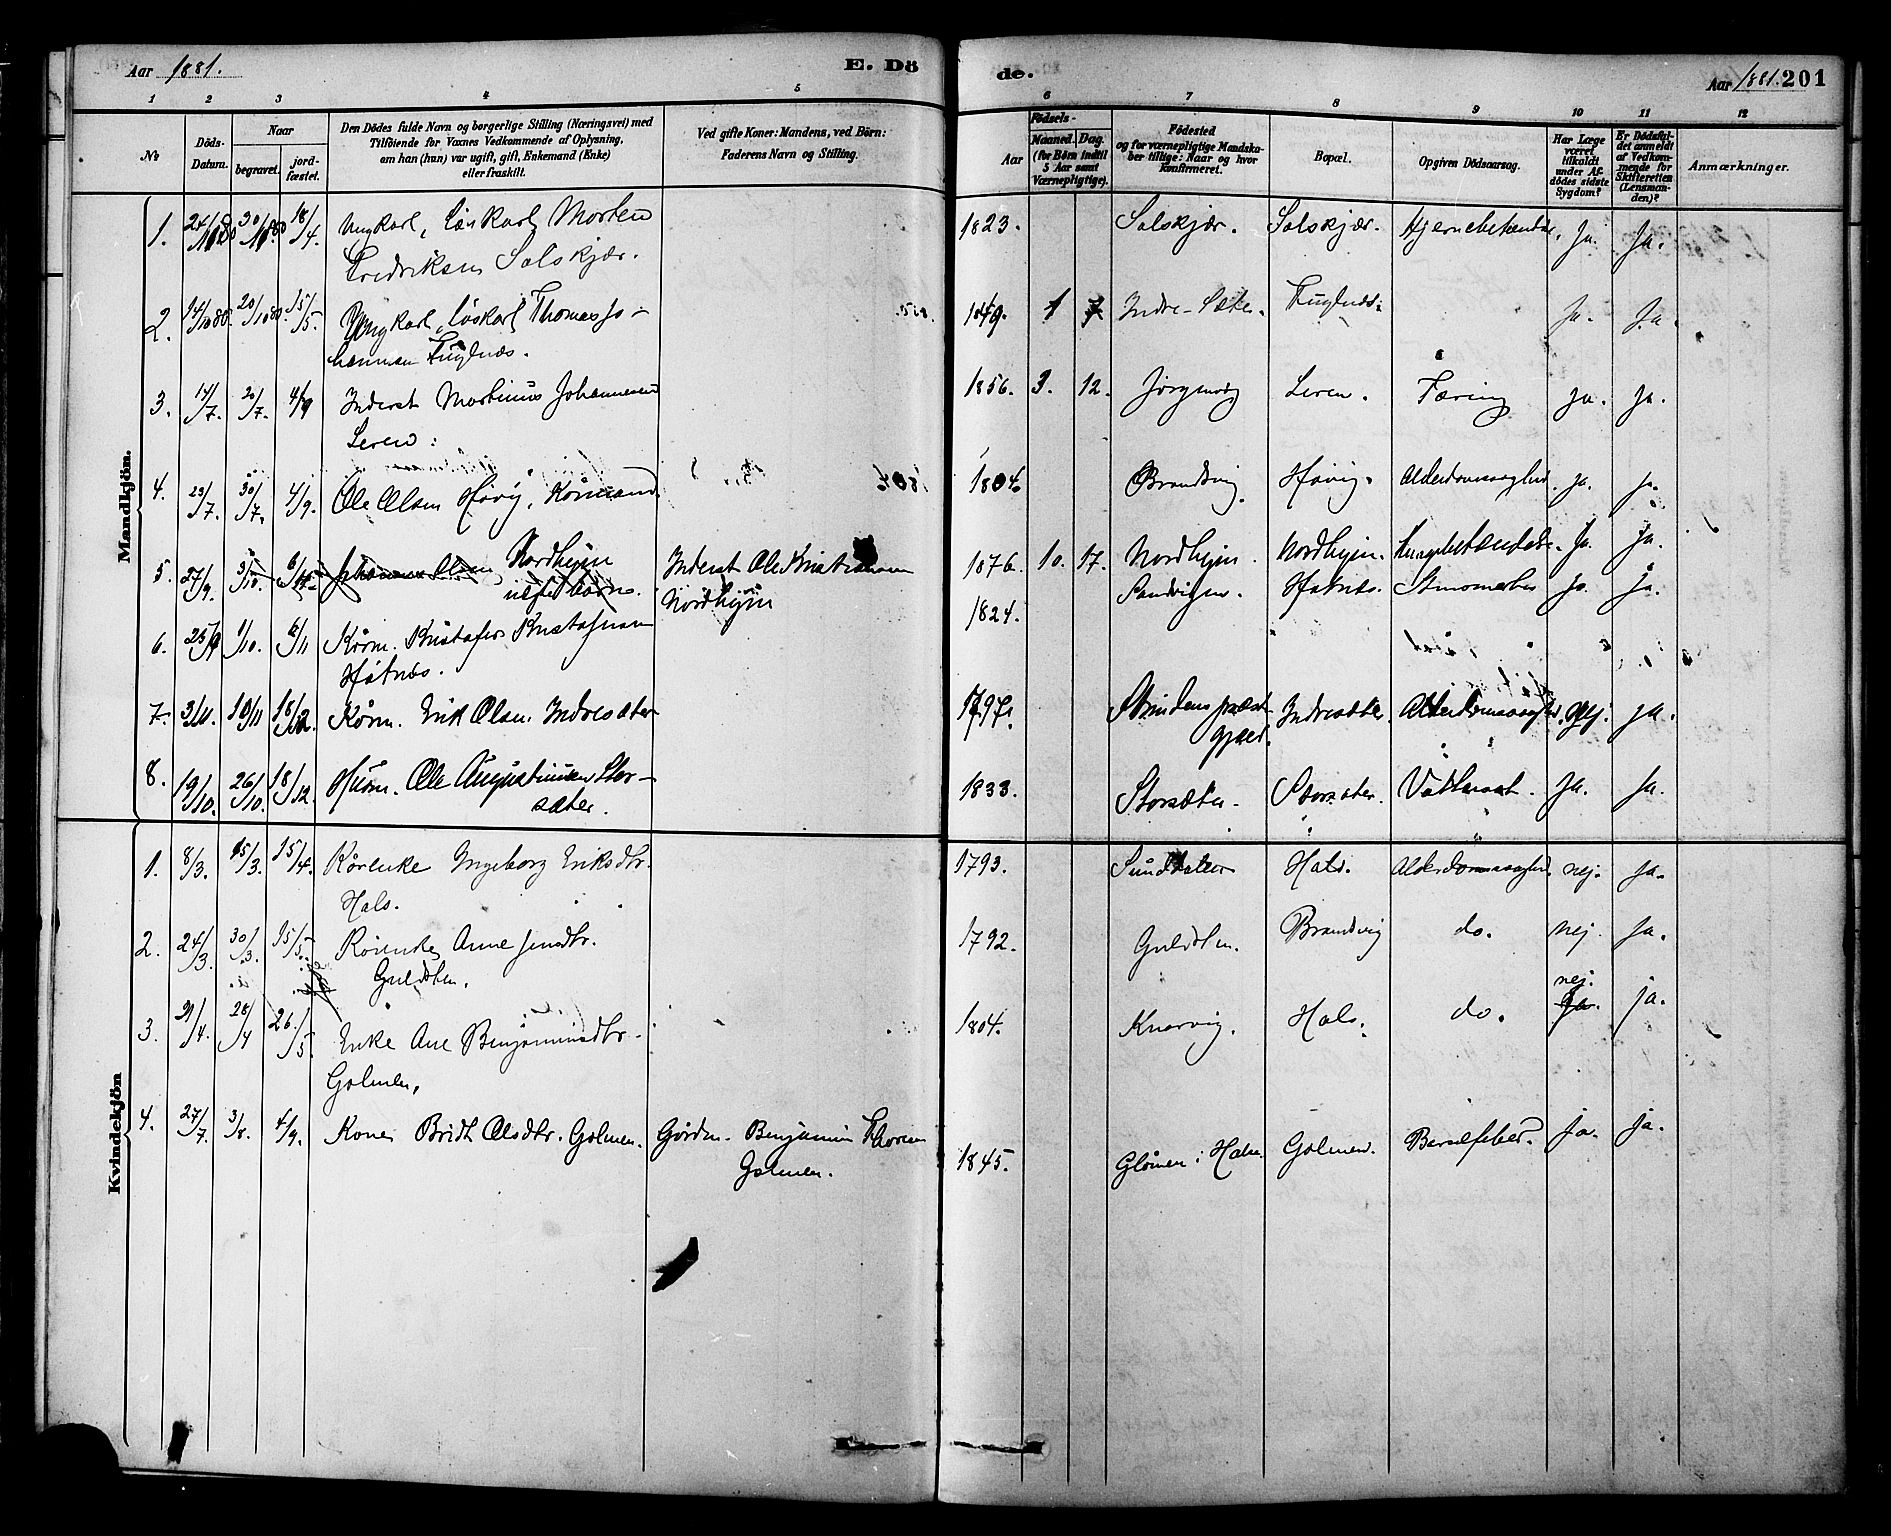 Aar 1881. E. Dö de. Aar 1881. 201
1 2 3 4 5 6 7 8 9 10 11 12
No
Döds-Datum.
Naar
begravet.
jordfæstet.
Den Dödes fulde Navn og borgerlige Stilling (Næringsvei) med
Tilföiende for Voxnes Vedkommende af Oplysning,
om han (hun) var ugift, gift, Enkemand (Enke)
eller fraskilt.
Ved gifte Koner: Mandens, ved Börn:
Faderens Navn og Stilling.
Födsels-
Aar
Maaned. Dag.
(for Börn indtil
5 Aar samt
Værnepligtige).
Födested
og for værnepligtige Mandskaber
tillige: Naar og hvor
konfirmeret.
Bopæl.
Opgiven Dödsaarsag.
Har Læge
været
tilkaldt
under Afdödes
sidste
Sygdom?
Er Dödsfaldet
anmeldt
af Vedkommende
for
Skifteretten
(Lensmanden)?
Anmærkninger.
Mandkjön.
1. 30/ 18/4. Ungkarl, Löskarl Morten 1823. Solskjær. Solskjær. Ja. Ja.
Fredriksen Solskjær.
2. 14/10 80. 20/10 80. 15/5. Ungkarl, löskarl Thomas Jo- 1 Indre-Sæter. Fuglnæs. Ja. Ja.
hannesen Fuglnæs.
3. 14/7. 20/7. 4/9 Inderst Martinus Johannesen 1856. 3. 12. Leren. Tæring ja. ja.
Leren.
4. 23/7. 30/7. 4/9. Ole Olsen Høvig, Kårmand 1804. Brandvig. Høvig. Alderdomssvaghed. ja. ja.
5. 27/9. 3/10. Johannes Olsen Nordhejm Inderst Ole Kristiansen 1876. 10. 17. Nordhejm. Nordhejm. Ja. Ja.
Nordhejm
6. 1/10. 6/11 Kårm. Kristofer Kristofersen 1824. Sandvigen. Håtnæs. ja. ja.
Håtnæs.
7. 3/11. 10/11 18/12. Kårm. Erik Olsen Indresæter 1797. Strindens præste- Indresæter. Alderdomssvaghed. Nej. ja.
gjæld.
8. 19/10. 26/10. 18/12. Husm. Ole Augustinusen Stor- 1833. Storsæter. Storsæter. Vattersot. Ja. Ja.
sæter.
Kvindekjön
1. 8/3. 15/3. 15/4. Kårenke Ingeborg Eriksdtr. 1793. Hals. Alderdomssvaghed. nej. ja.
Hals.
2. 24/3. 30/3. 15/5. Kårenke Anne Jensdtr. 1792. Guldsten. Brandvig do. nej. Ja.
Guldsten.
3. 21/4. 28/4 26/5. Enke Ane Benjaminsdtr. 1804. Knarvig. Hals. do. nej. ja.
Golmen.
4. 27/7. 3/8. 4/9. Kone Bridt Olsdtr. Golmen. Gårdm. Benjamin Thoresen 1845. Golmen. Barselfeber. ja. ja.
Golmen.